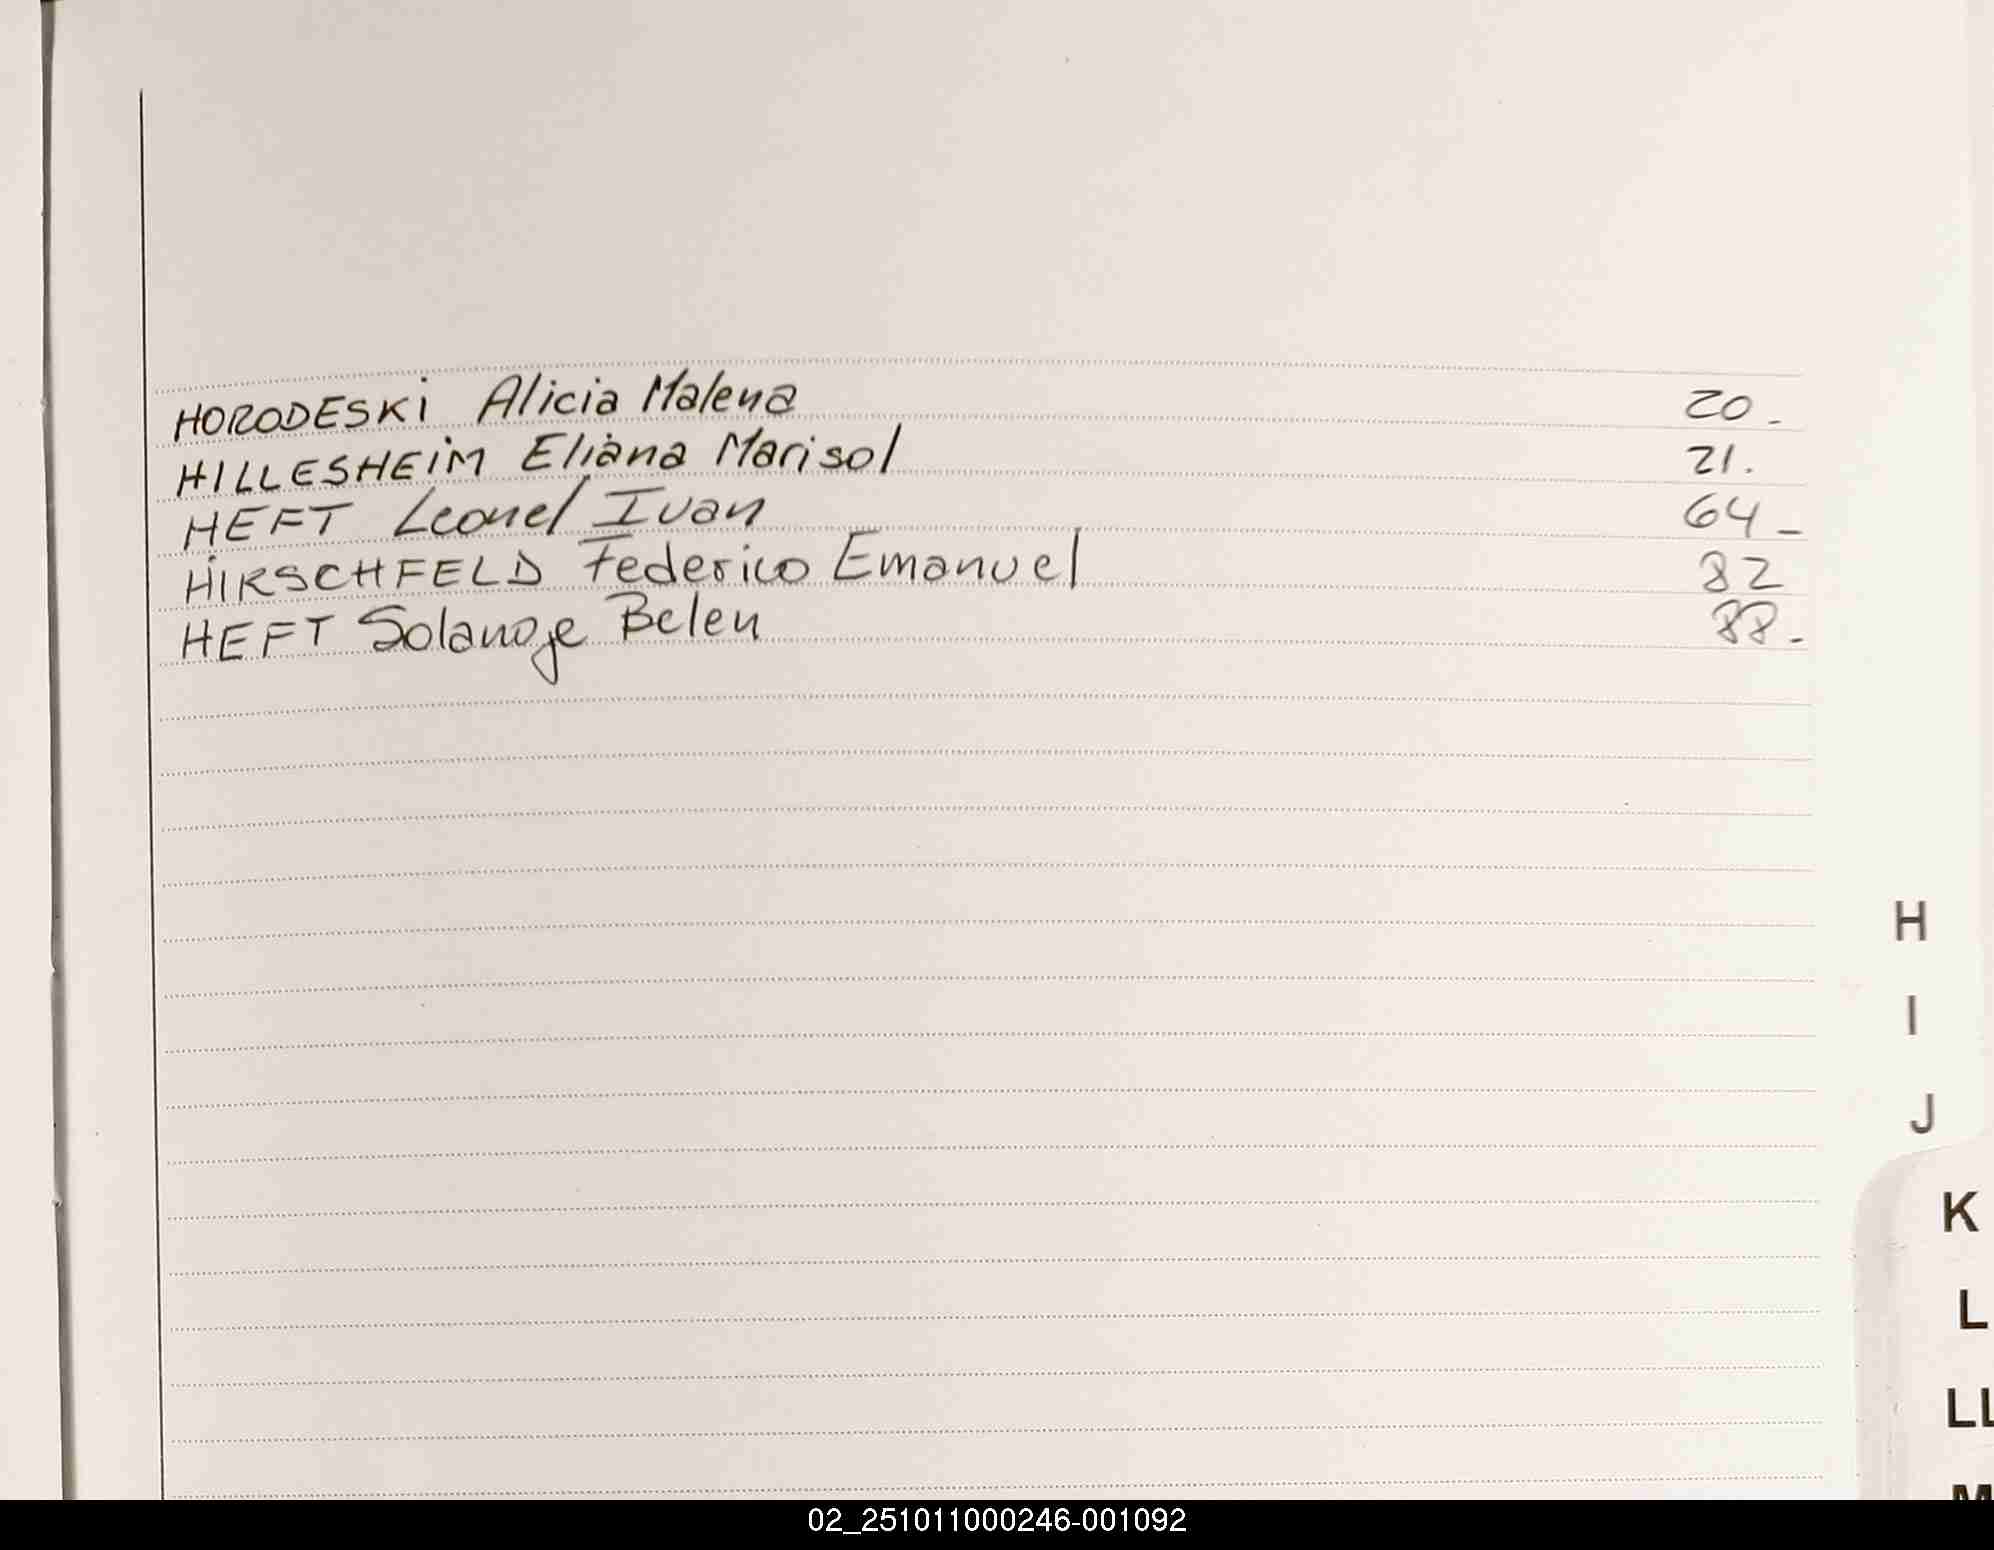 HORODESKi Alicia Malena 20.
HILLESHEiM Eliana Marisol 21.
HEFT Leonel Ivan 64-
HiRSCHFELD Federico Emanuel 82
HEFT Solange Belen 88.
H
I
J
K
L
LL
M
02_251011000246-001092